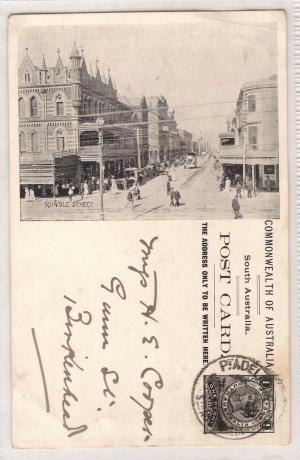 RUNDLE STREET
COMMONWEALTH OF AUSTRALIA.
South Australia.
POST CARD.
THE ADDRESS ONLY TO BE WRITTEN HERE
Pt ADEL
Miss A. E. Cooper
Gunn St.
Birkenhead